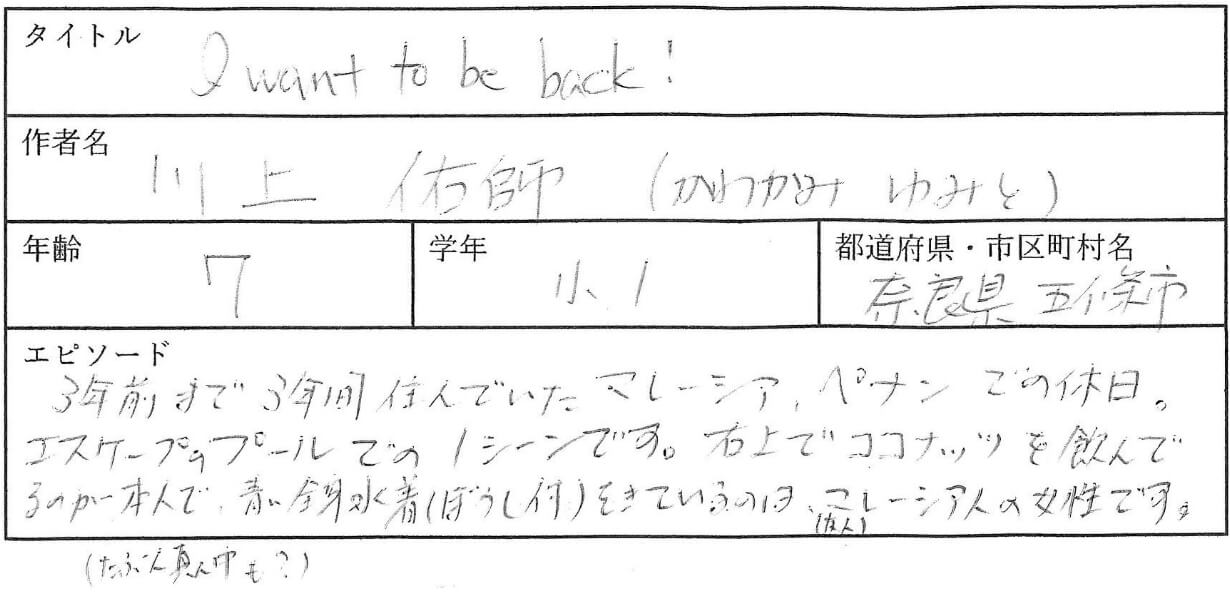 タイトル
I want to be back!
作者名
川上 佑師 (かわかみ ゆみと)
年齢
7
学年
小1
都道府県・市区町村名
奈良県 五條市
エピソード
3年前まで3年間住んでいたマレーシア、ペナンでの休日。
エスケープのプールでの1シーンです。右上でココナッツを飲んで
るのが本人で、青い全身水着(ぼうし付)をきているのは、マレーシア人の女性です。
(友人)
(たぶん真ん中も?)